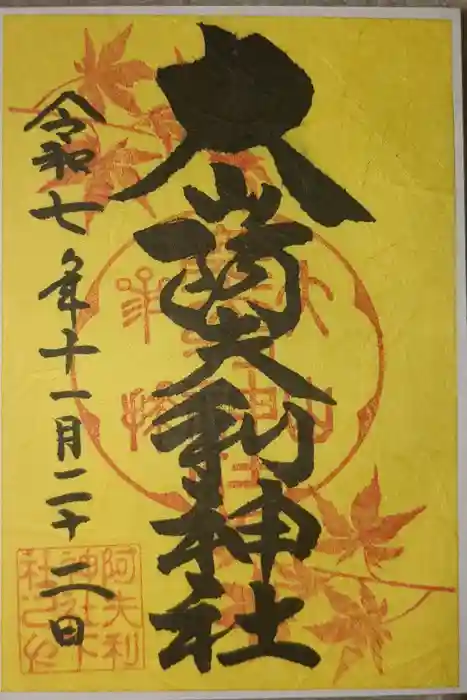 大山阿夫利神社
令和七年十一月二十二日
阿夫利
神社下
社之印